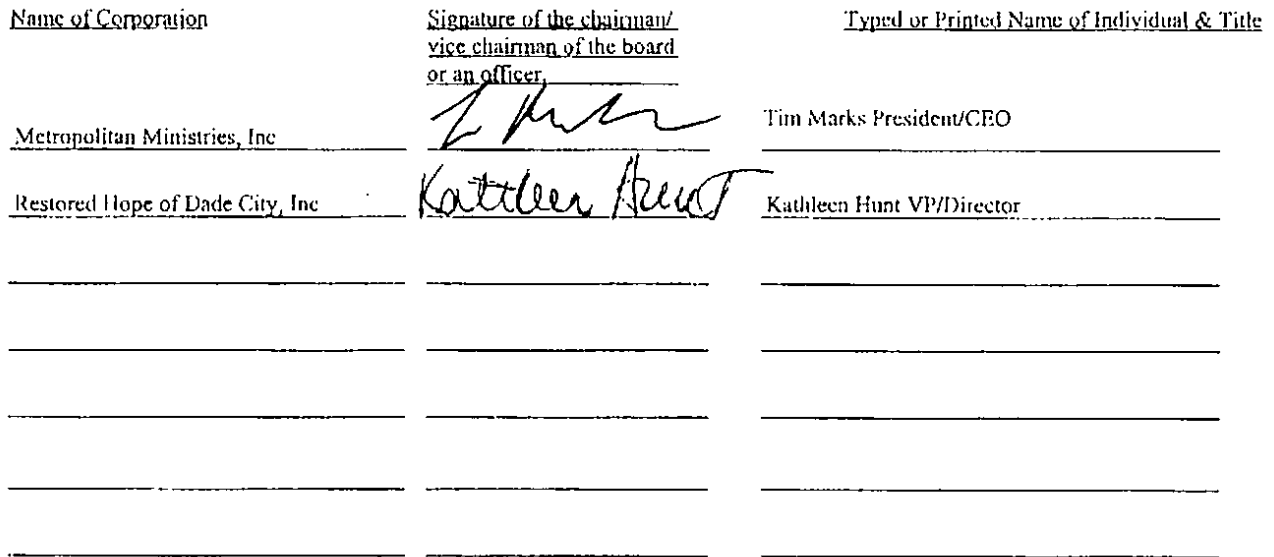 Name of Corporation
Signature of the chairman/
vice chairman of the board
or an officer.
Typed or Printed Name of Individual & Title
Metropolitan Ministries, Inc
Tim Marks President/CEO
Restored Hope of Dade City, Inc
Kathleen Hunt
Kathleen Hunt VP/Director